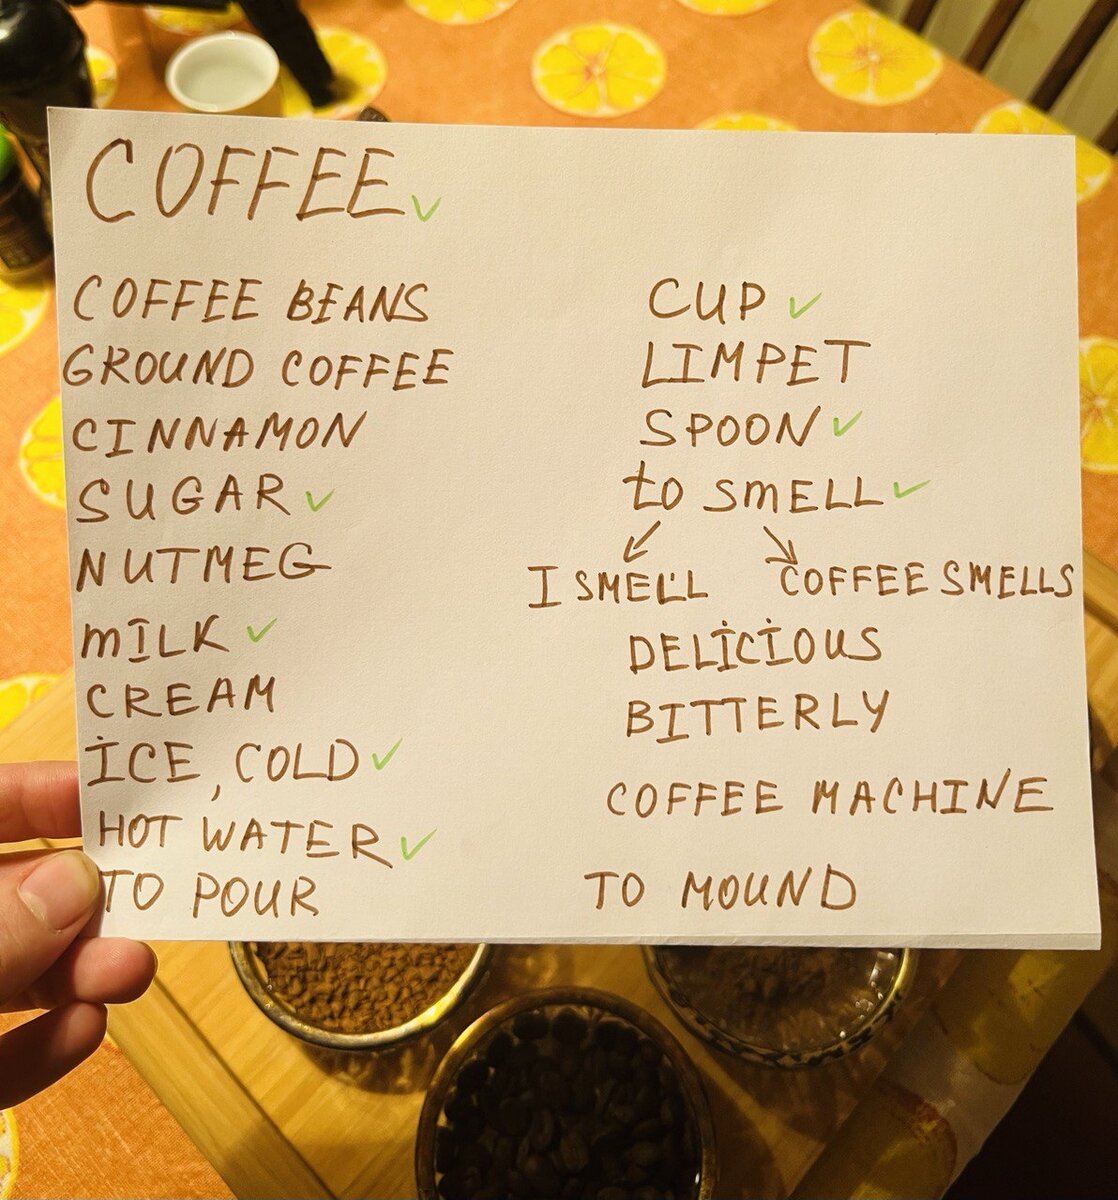 COFFEE ✓
COFFEE BEANS
GROUND COFFEE
CINNAMON
SUGAR ✓
NUTMEG
MILK ✓
CREAM
ICE, COLD ✓
HOT WATER ✓
TO POUR
CUP ✓
LIMPET
SPOON ✓
to SMELL ✓
I SMELL
COFFEE SMELLS
DELICIOUS
BITTERLY
COFFEE MACHINE
TO MOUND